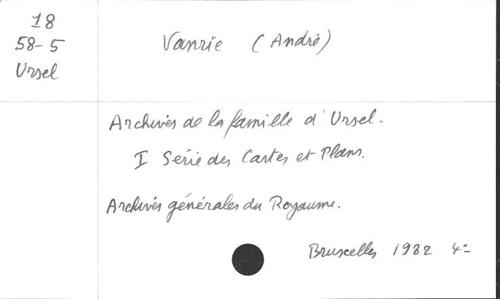 18
58-5
Ursel
Vanrie (André)
Archives de la famille d'Ursel.
I Série des Cartes et Plans.
Archives générales du Royaume.
Bruxelles 1982 4=